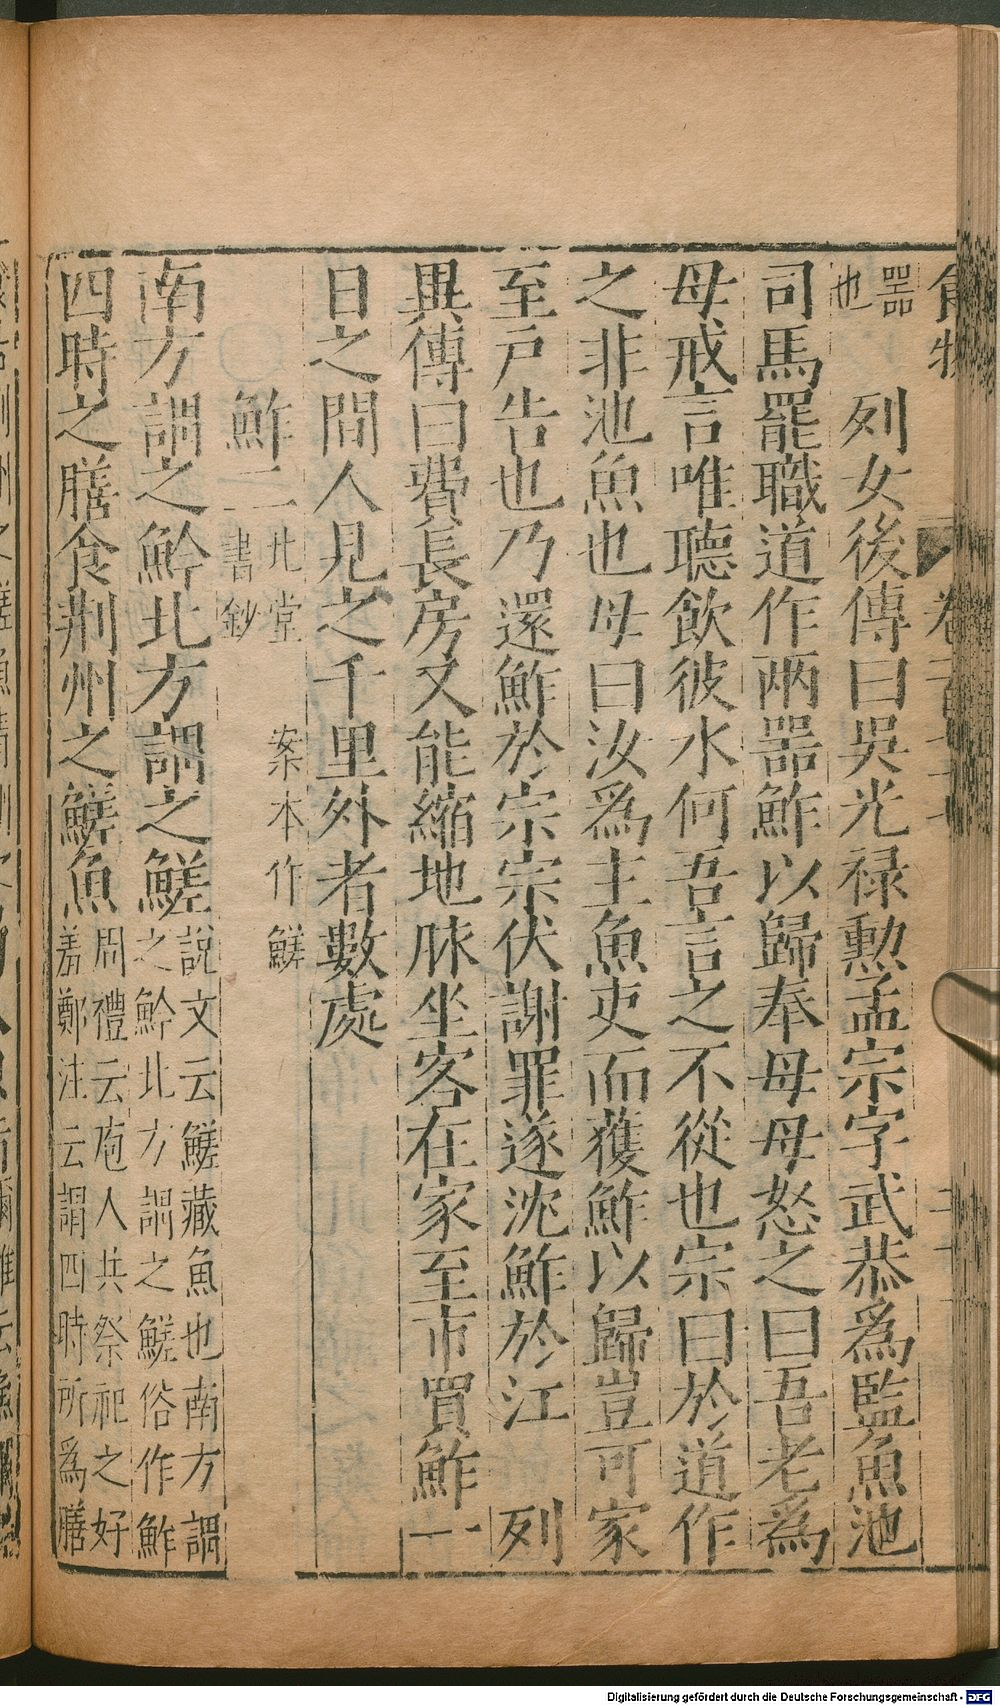 食物
器也 列女後傳曰吳光祿勲孟宗字武恭爲監魚池
司馬罷職道作兩器鮓以歸奉母母怒之曰吾老爲
母戒言唯聽飲彼水何吾言之不從也宗曰於道作
之非池魚也母曰汝爲主魚吏而獲鮓以歸豈可家
至戸告也乃還鮓於宗宗伏謝罪遂沈鮓於江 列
異傳曰費長房又能縮地脉坐客在家至市買鮓一
日之間人見之千里外者數處
鮓二 北堂書鈔 案本作鮺
南方謂之䰼北方謂之鮺 說文云鮺藏魚也南方謂之䰼北方謂之鮺俗作鮓
四時之膳食荆州之鮺魚 周禮云庖人共祭祀之好羞鄭注云謂四時所爲膳
Digitalisierung gefördert durch die Deutsche Forschungsgemeinschaft - DFG